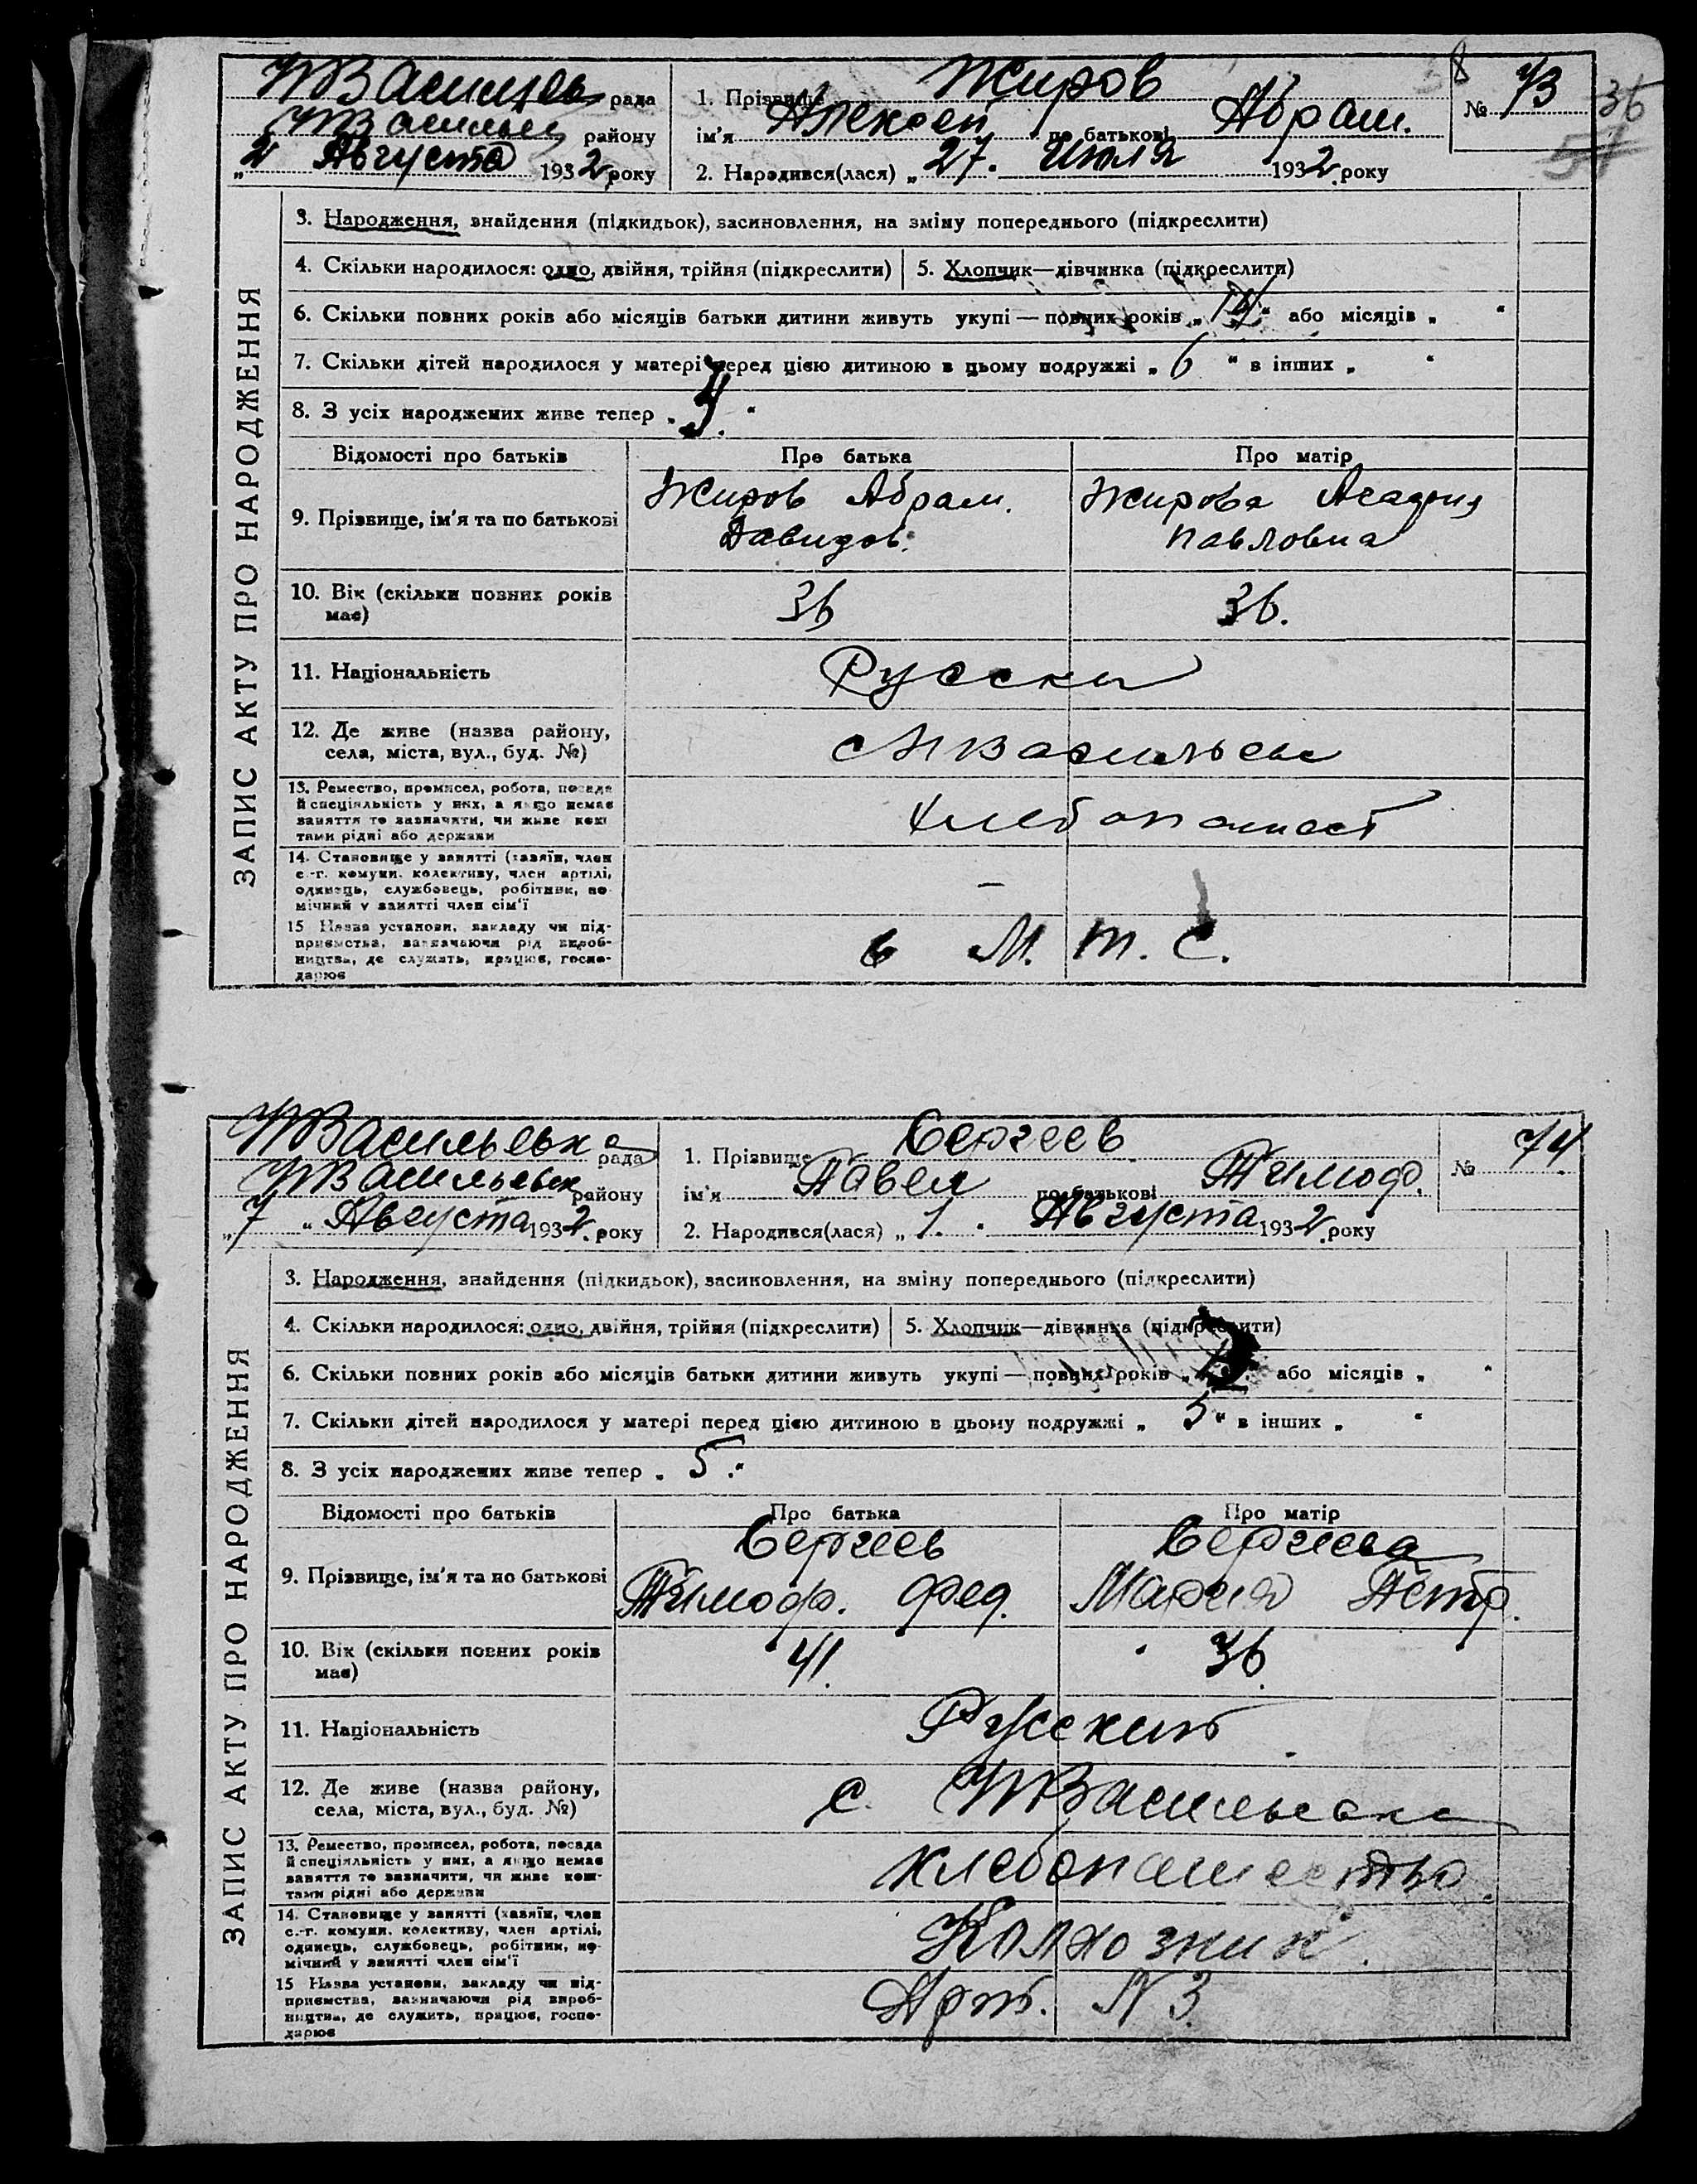 8
НВасильев рада
НВасильев району
„2 Августа 1932 року
1. Прізвище Жиров
ім'я Алексей по батькові Абрам.
2. Народився(лася) „27. Июля 1932 року
№ 73
36
ЗАПИС АКТУ ПРО НАРОДЖЕННЯ
3. Народження, знайдення (підкидьок), засиновлення, на зміну попереднього (підкреслити)
4. Скільки народилося: одно, двійня, трійня (підкреслити) 5. Хлопчик—дівчинка (підкреслити)
6. Скільки повних років або місяців батьки дитини живуть укупі — повних років „ “ або місяців „ “
7. Скільки дітей народилося у матері перед цією дитиною в цьому подружжі „ 6 “ в інших „ “
8. З усіх народжених живе тепер „ “
Відомості про батьків Про батька Про матір
9. Прізвище, ім'я та по батькові
Жиров Абрам. Давидов.
Жирова Павловна
10. Вік (скільки повних років має) 36 36.
11. Національність Русски
12. Де живе (назва району, села, міста, вул., буд. №) с НВасильевк
13. Ремество, промисел, робота, посада
й спеціяльність у них, а якщо немає
заняття то зазначити, чи живе кош-
тами рідні або держави
Хлебопашест
14. Становище у занятті (хазяїн, член
с.-г. комуни, колективу, член артілі,
одинець, службовець, робітник, по-
мічний у занятті член сім'ї
–
15 Назва установи, закладу чи під-
приємства, зазначаючи рід вироб-
ництва, де служить, працює, госпо-
дарює
в М. Т. С.
НВасильевка рада
НВасильевск району
„7 „ Августа 1932 року
1. Прізвище Сергеев
ім'я Павел по батькові Тимоф.
2. Народився(лася) „1. Августа 1932 року
№ 74
ЗАПИС АКТУ ПРО НАРОДЖЕННЯ
3. Народження, знайдення (підкидьок), засиновлення, на зміну попереднього (підкреслити)
4. Скільки народилося: одно, двійня, трійня (підкреслити) 5. Хлопчик—дівчинка (підкреслити)
6. Скільки повних років або місяців батьки дитини живуть укупі — повних років „ “ або місяців „ “
7. Скільки дітей народилося у матері перед цією дитиною в цьому подружжі „ 5 “ в інших „ “
8. З усіх народжених живе тепер „ 5. “
Відомості про батьків Про батька Про матір
9. Прізвище, ім'я та по батькові
Сергеев Тимоф. Фед.
Сергеева Мария Петр.
10. Вік (скільки повних років має) 41. 36.
11. Національність Русский
12. Де живе (назва району, села, міста, вул., буд. №) с. НВасильевка
13. Ремество, промисел, робота, посада
й спеціяльність у них, а якщо немає
заняття то зазначити, чи живе кош-
тами рідні або держави
Хлебопашество.
14. Становище у занятті (хазяїн, член
с.-г. комуни, колективу, член артілі,
одинець, службовець, робітник, по-
мічний у занятті член сім'ї
Колхозник.
15 Назва установи, закладу чи під-
приємства, зазначаючи рід вироб-
ництва, де служить, працює, госпо-
дарює
Арт. N 3